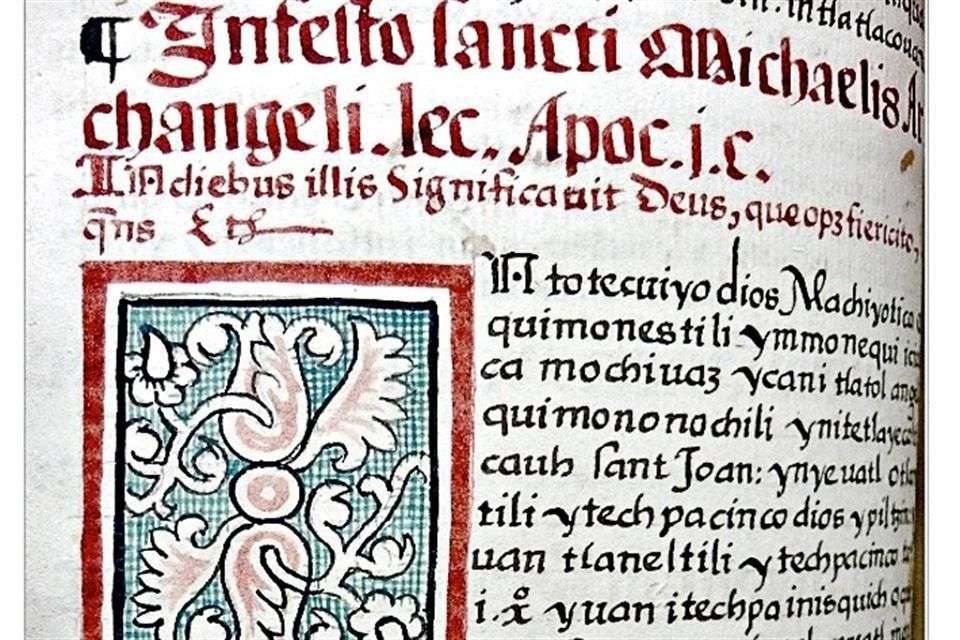 in tlatlacouan
¶ In festo sancti Michaelis Ar
changeli. lec. Apoc. j. c.
In diebus illis Significauit Deus, que opꝫ fieri cito,
q̄ns &
IN totecuiyo dios Machiyotica
quimonestili ymmonequi
ca mochiuaz ycani tlatol
quimononochili ynitetlayeca
cauh sant Joan: ynyeuatl
tili ytechpacinco dios ypiltzin
uan tlaneltili ytechpacinco
i. x̊ yuan itechpa inisquich